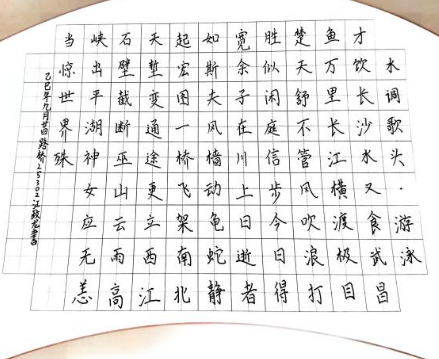 水调歌头·游泳
才饮长沙水又食武昌
鱼万里长江横渡极目
楚天舒不管风吹浪打
胜似闲庭信步今日得
宽余子在川上曰逝者
如斯夫风樯动龟蛇静
起宏图一桥飞架南北
天堑变通途更立西江
石壁截断巫山云雨高
峡出平湖神女应无恙
当惊世界殊
乙巳年九月 路桥25302江 书